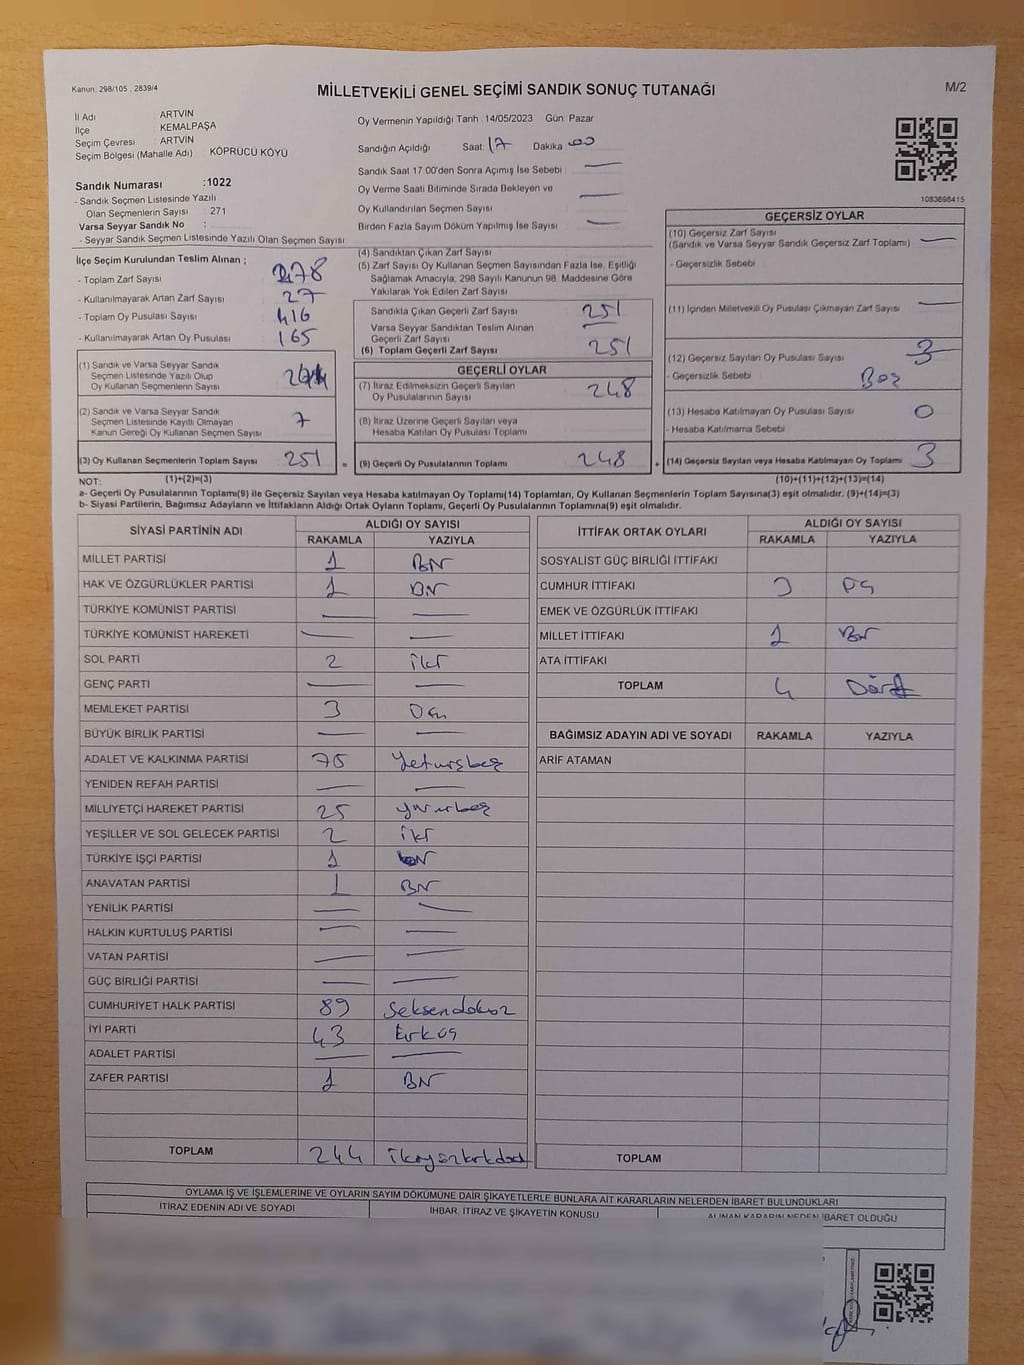 Kanun: 298/105 , 2839/4
MİLLETVEKİLİ GENEL SEÇİMİ SANDIK SONUÇ TUTANAĞI
M/2
İl Adı : ARTVİN
İlçe : KEMALPAŞA
Seçim Çevresi : ARTVİN
Seçim Bölgesi (Mahalle Adı) : KÖPRÜCÜ KÖYÜ
Sandık Numarası :1022
- Sandık Seçmen Listesinde Yazılı
Olan Seçmenlerin Sayısı : 271
Varsa Seyyar Sandık No :
- Seyyar Sandık Seçmen Listesinde Yazılı Olan Seçmen Sayısı
Oy Vermenin Yapıldığı Tarih : 14/05/2023 Gün: Pazar
Sandığın Açıldığı Saat: 17 Dakika 00
Sandık Saat 17:00'den Sonra Açımış İse Sebebi
Oy Verme Saati Bitiminde Sırada Bekleyen ve
Oy Kullandırılan Seçmen Sayısı
Birden Fazla Sayım Döküm Yapılmış İse Sayısı
1083698415
İlçe Seçim Kurulundan Teslim Alınan ;
- Toplam Zarf Sayısı 278
- Kullanılmayarak Artan Zarf Sayısı 27
- Toplam Oy Pusulası Sayısı 416
- Kullanılmayarak Artan Oy Pusulası 165
(1) Sandık ve Varsa Seyyar Sandık
Seçmen Listesinde Yazılı Olup
Oy Kullanan Seçmenlerin Sayısı 244
(2) Sandık ve Varsa Seyyar Sandık
Seçmen Listesinde Kayıtlı Olmayan
Kanun Gereği Oy Kullanan Seçmen Sayısı 7
(3) Oy Kullanan Seçmenlerin Toplam Sayısı 251 =
(1)+(2)=(3)
(4) Sandıktan Çıkan Zarf Sayısı
(5) Zarf Sayısı Oy Kullanan Seçmen Sayısından Fazla İse, Eşitliği
Sağlamak Amacıyla, 298 Sayılı Kanunun 98. Maddesine Göre
Yakılarak Yok Edilen Zarf Sayısı
Sandıkla Çıkan Geçerli Zarf Sayısı 251
Varsa Seyyar Sandıktan Teslim Alınan
Geçerli Zarf Sayısı
(6) Toplam Geçerli Zarf Sayısı 251
GEÇERLİ OYLAR
(7) İtiraz Edilmeksizin Geçerli Sayılan
Oy Pusulalarının Sayısı 248
(8) İtiraz Üzerine Geçerli Sayılan veya
Hesaba Katılan Oy Pusulası Toplamı
(9) Geçerli Oy Pusulalarının Toplamı 248 +
GEÇERSİZ OYLAR
(10) Geçersiz Zarf Sayısı
(Sandık ve Varsa Seyyar Sandık Geçersiz Zarf Toplamı)
- Geçersizlik Sebebi
(11) İçinden Milletvekili Oy Pusulası Çıkmayan Zarf Sayısı
(12) Geçersiz Sayılan Oy Pusulası Sayısı 3
- Geçersizlik Sebebi Boş
(13) Hesaba Katılmayan Oy Pusulası Sayısı 0
- Hesaba Katılmama Sebebi
(14) Geçersiz Sayılan veya Hesaba Katılmayan Oy Toplamı 3
(10)+(11)+(12)+(13)=(14)
NOT:
a- Geçerli Oy Pusulalarının Toplamı(9) ile Geçersiz Sayılan veya Hesaba katılmayan Oy Toplamı(14) Toplamları, Oy Kullanan Seçmenlerin Toplam Sayısına(3) eşit olmalıdır. (9)+(14)=(3)
b- Siyasi Partilerin, Bağımsız Adayların ve İttifakların Aldığı Ortak Oyların Toplamı, Geçerli Oy Pusulalarının Toplamına(9) eşit olmalıdır.
SİYASİ PARTİNİN ADI ALDIĞI OY SAYISI
RAKAMLA YAZIYLA
MİLLET PARTİSİ 1 BİR
HAK VE ÖZGÜRLÜKLER PARTİSİ 1 BİR
TÜRKİYE KOMÜNİST PARTİSİ
TÜRKİYE KOMÜNİST HAREKETİ
SOL PARTİ 2 iki
GENÇ PARTİ
MEMLEKET PARTİSİ 3
BÜYÜK BİRLİK PARTİSİ
ADALET VE KALKINMA PARTİSİ 75 Yetmişbeş
YENİDEN REFAH PARTİSİ
MİLLİYETÇİ HAREKET PARTİSİ 25 yirmibeş
YEŞİLLER VE SOL GELECEK PARTİSİ 2 iki
TÜRKİYE İŞÇİ PARTİSİ 1 BİR
ANAVATAN PARTİSİ 1 BİR
YENİLİK PARTİSİ
HALKIN KURTULUŞ PARTİSİ
VATAN PARTİSİ
GÜÇ BİRLİĞİ PARTİSİ
CUMHURİYET HALK PARTİSİ 89 Seksendokuz
İYİ PARTİ 43 kırküç
ADALET PARTİSİ
ZAFER PARTİSİ 1 BİR
TOPLAM 244 ikiyüzkırkdört
İTTİFAK ORTAK OYLARI ALDIĞI OY SAYISI
RAKAMLA YAZIYLA
SOSYALİST GÜÇ BİRLİĞİ İTTİFAKI
CUMHUR İTTİFAKI 3 üç
EMEK VE ÖZGÜRLÜK İTTİFAKI
MİLLET İTTİFAKI 1 Bir
ATA İTTİFAKI
TOPLAM 4 Dört
BAĞIMSIZ ADAYIN ADI VE SOYADI RAKAMLA YAZIYLA
ARİF ATAMAN
TOPLAM
OYLAMA İŞ VE İŞLEMLERİNE VE OYLARIN SAYIM DÖKÜMÜNE DAİR ŞİKAYETLERLE BUNLARA AİT KARARLARIN NELERDEN İBARET BULUNDUKLARI
İTİRAZ EDENİN ADI VE SOYADI İHBAR, İTİRAZ VE ŞİKAYETİN KONUSU ALINAN KARARIN NEDEN İBARET OLDUĞU